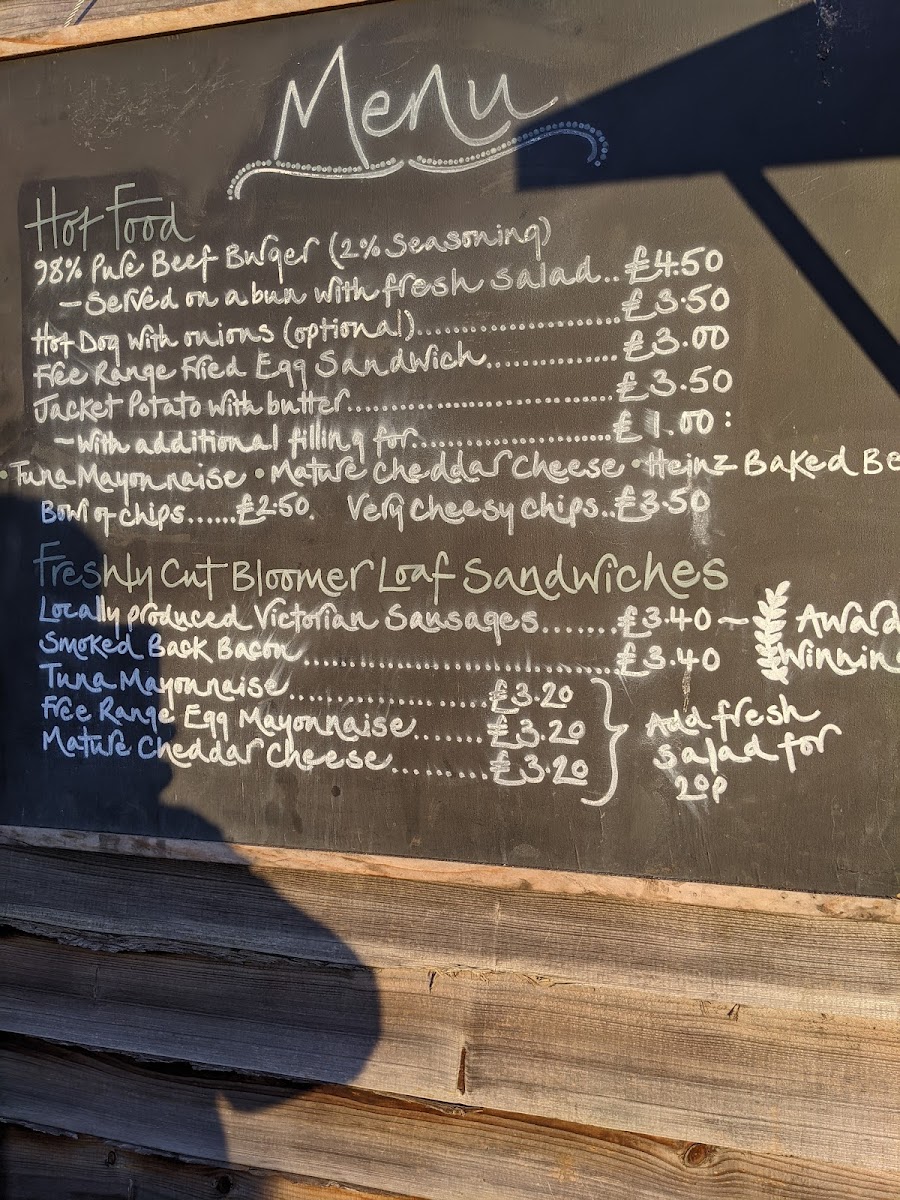 Menu
Hot Food
98% Pure Beef Burger (2% seasoning)
- Served on a bun with fresh salad.. £4.50
Hot Dog with onions (optional)........................ £3.50
Free Range Fried Egg Sandwich................ £3.00
Jacket Potato with butter............................... £3.50
- with additional filling for....................... £1.00:
• Tuna Mayonnaise • Mature Cheddar Cheese • Heinz Baked Be
Bowl of chips......£2.50. Very cheesy chips..£3.50
Freshly Cut Bloomer Loaf Sandwiches
Locally produced Victorian Sausages.......£3.40 ~ Award
Smoked Back Bacon.....................................£3.40 Winnin
Tuna Mayonnaise......................£3.20
Free Range Egg Mayonnaise.......£3.20 Add fresh
Mature Cheddar Cheese..........£3.20 salad for
20p